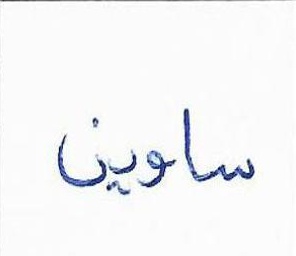 ساوين